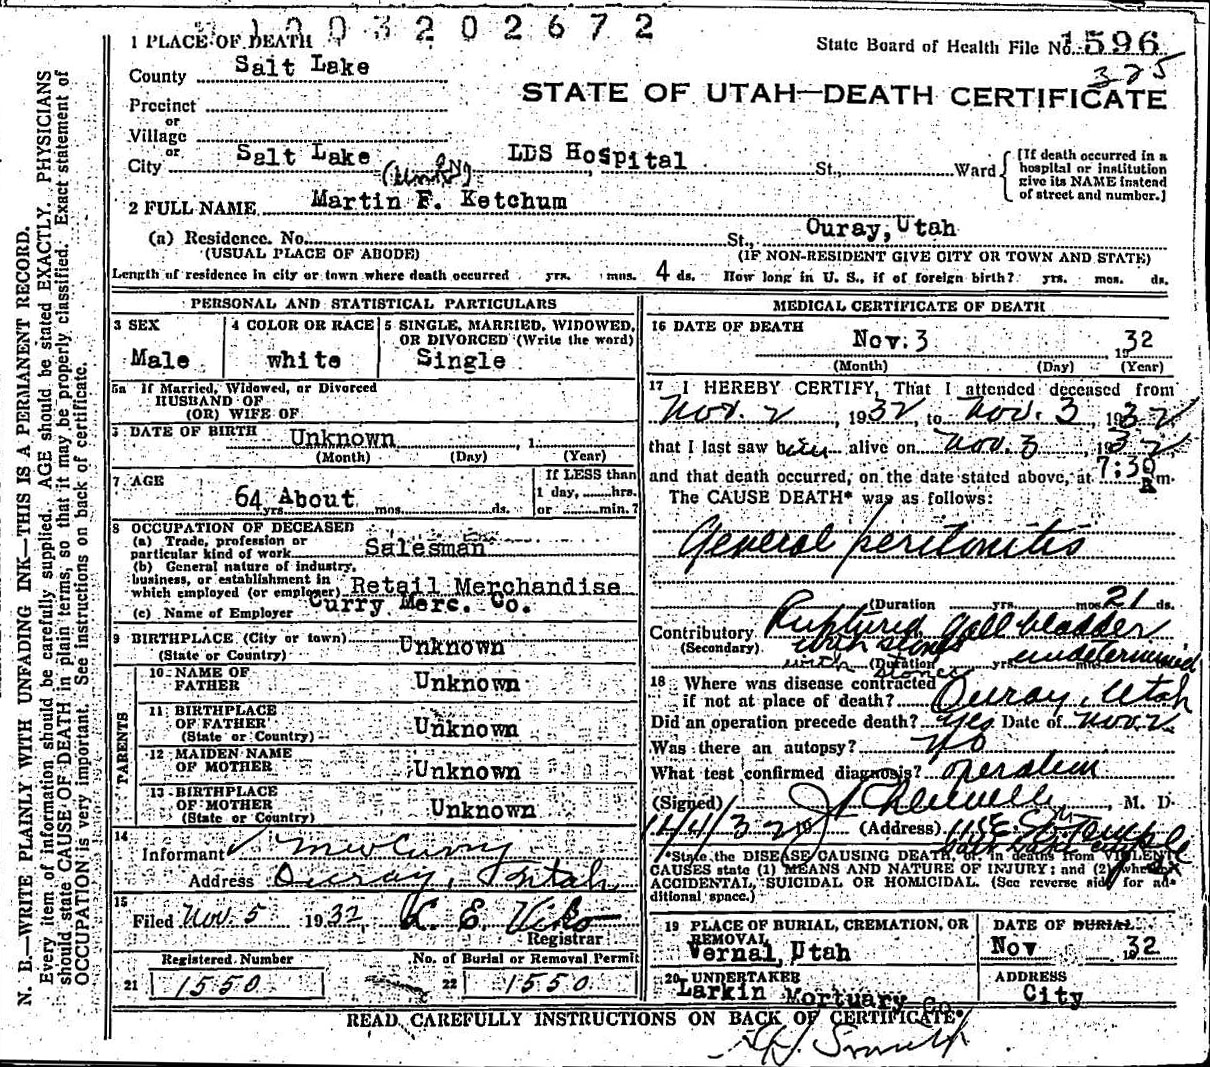 1003202672
1 PLACE OF DEATH
State Board of Health File No. 1596
325
County Salt Lake
STATE OF UTAH—DEATH CERTIFICATE
Precinct
or
Village
or
City Salt Lake LDS Hospital St., Ward
[If death occurred in a hospital or institution give its NAME instead of street and number.]
2 FULL NAME Martin F. Ketchum
(a) Residence. No. St., Ouray, Utah
(USUAL PLACE OF ABODE) (IF NON-RESIDENT GIVE CITY OR TOWN AND STATE)
Length of residence in city or town where death occurred yrs. mos. 4 ds. How long in U. S., if of foreign birth? yrs. mos. ds.
PERSONAL AND STATISTICAL PARTICULARS
3 SEX
Male
4 COLOR OR RACE
white
5 SINGLE, MARRIED, WIDOWED, OR DIVORCED (Write the word)
Single
5a If Married, Widowed, or Divorced
HUSBAND OF
(OR) WIFE OF
DATE OF BIRTH Unknown , 1
(Month) (Day) (Year)
7 AGE
64 yrs. About mos. ds.
If LESS than
1 day, hrs.
or min.?
8 OCCUPATION OF DECEASED
(a) Trade, profession or
particular kind of work Salesman
(b) General nature of industry,
business, or establishment in
which employed (or employer) Retail Merchandise
(c) Name of Employer Curry Merc. Co.
9 BIRTHPLACE (City or town)
(State or Country) Unknown
PARENTS
10 NAME OF
FATHER Unknown
11 BIRTHPLACE
OF FATHER
(State or Country) Unknown
12 MAIDEN NAME
OF MOTHER Unknown
13 BIRTHPLACE
OF MOTHER
(State or Country) Unknown
14
Informant Curry
Address Ouray, Utah
15
Filed Nov. 5 1932,
Registrar
Registered Number
21 1550
No. of Burial or Removal Permit
22 1550
MEDICAL CERTIFICATE OF DEATH
16 DATE OF DEATH
Nov. 3 , 1932
(Month) (Day) (Year)
17 I HEREBY CERTIFY, That I attended deceased from
Nov. 2 , 1932, to Nov. 3 , 1932
that I last saw alive on Nov. 3 , 1932
and that death occurred, on the date stated above, at 7:30 A m.
The CAUSE DEATH* was as follows:
General peritonitis
(Duration yrs. mos. 21 ds.
Contributory Ruptured gall bladder
(Secondary) with stones undetermined
with stones (Duration yrs. mos.
18 Where was disease contracted
if not at place of death? Ouray, Utah
Did an operation precede death? Yes Date of Nov 2
Was there an autopsy? No
What test confirmed diagnosis? operation
(Signed) , M. D.
11/4/32 19 (Address) 115 E. So. Temple
Salt Lake City
*State the DISEASE CAUSING DEATH, or, in deaths from VIOLENT
CAUSES state (1) MEANS AND NATURE OF INJURY; and (2) whether
ACCIDENTAL, SUICIDAL OR HOMICIDAL. (See reverse side for ad-
ditional space.)
19 PLACE OF BURIAL, CREMATION, OR
REMOVAL
Vernal, Utah
DATE OF BURIAL
Nov 1932
20 UNDERTAKER
Larkin Mortuary Co
ADDRESS
City
READ CAREFULLY INSTRUCTIONS ON BACK OF CERTIFICATE*
N. B.—WRITE PLAINLY WITH UNFADING INK—THIS IS A PERMANENT RECORD.
Every item of information should be carefully supplied. AGE should be stated EXACTLY. PHYSICIANS
should state CAUSE OF DEATH in plain terms, so that it may be properly classified. Exact statement of
OCCUPATION is very important. See instructions on back of certificate.